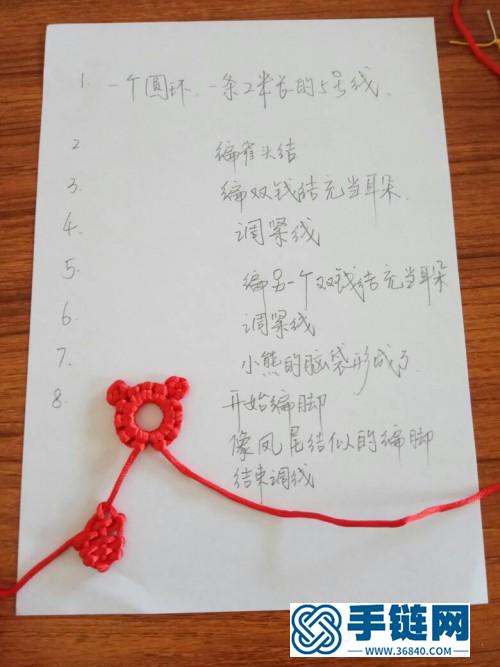 1. 一个圆环，一条2米长的5号线.
2. 编雀头结
3. 编双钱结充当耳朵.
4. 调紧线
5. 编另一个双钱结充当耳朵
6. 调紧线
7. 小熊的脑袋形成了
8. 开始编脚
像凤尾结似的编脚
结束调线
手链网
www.36840.com